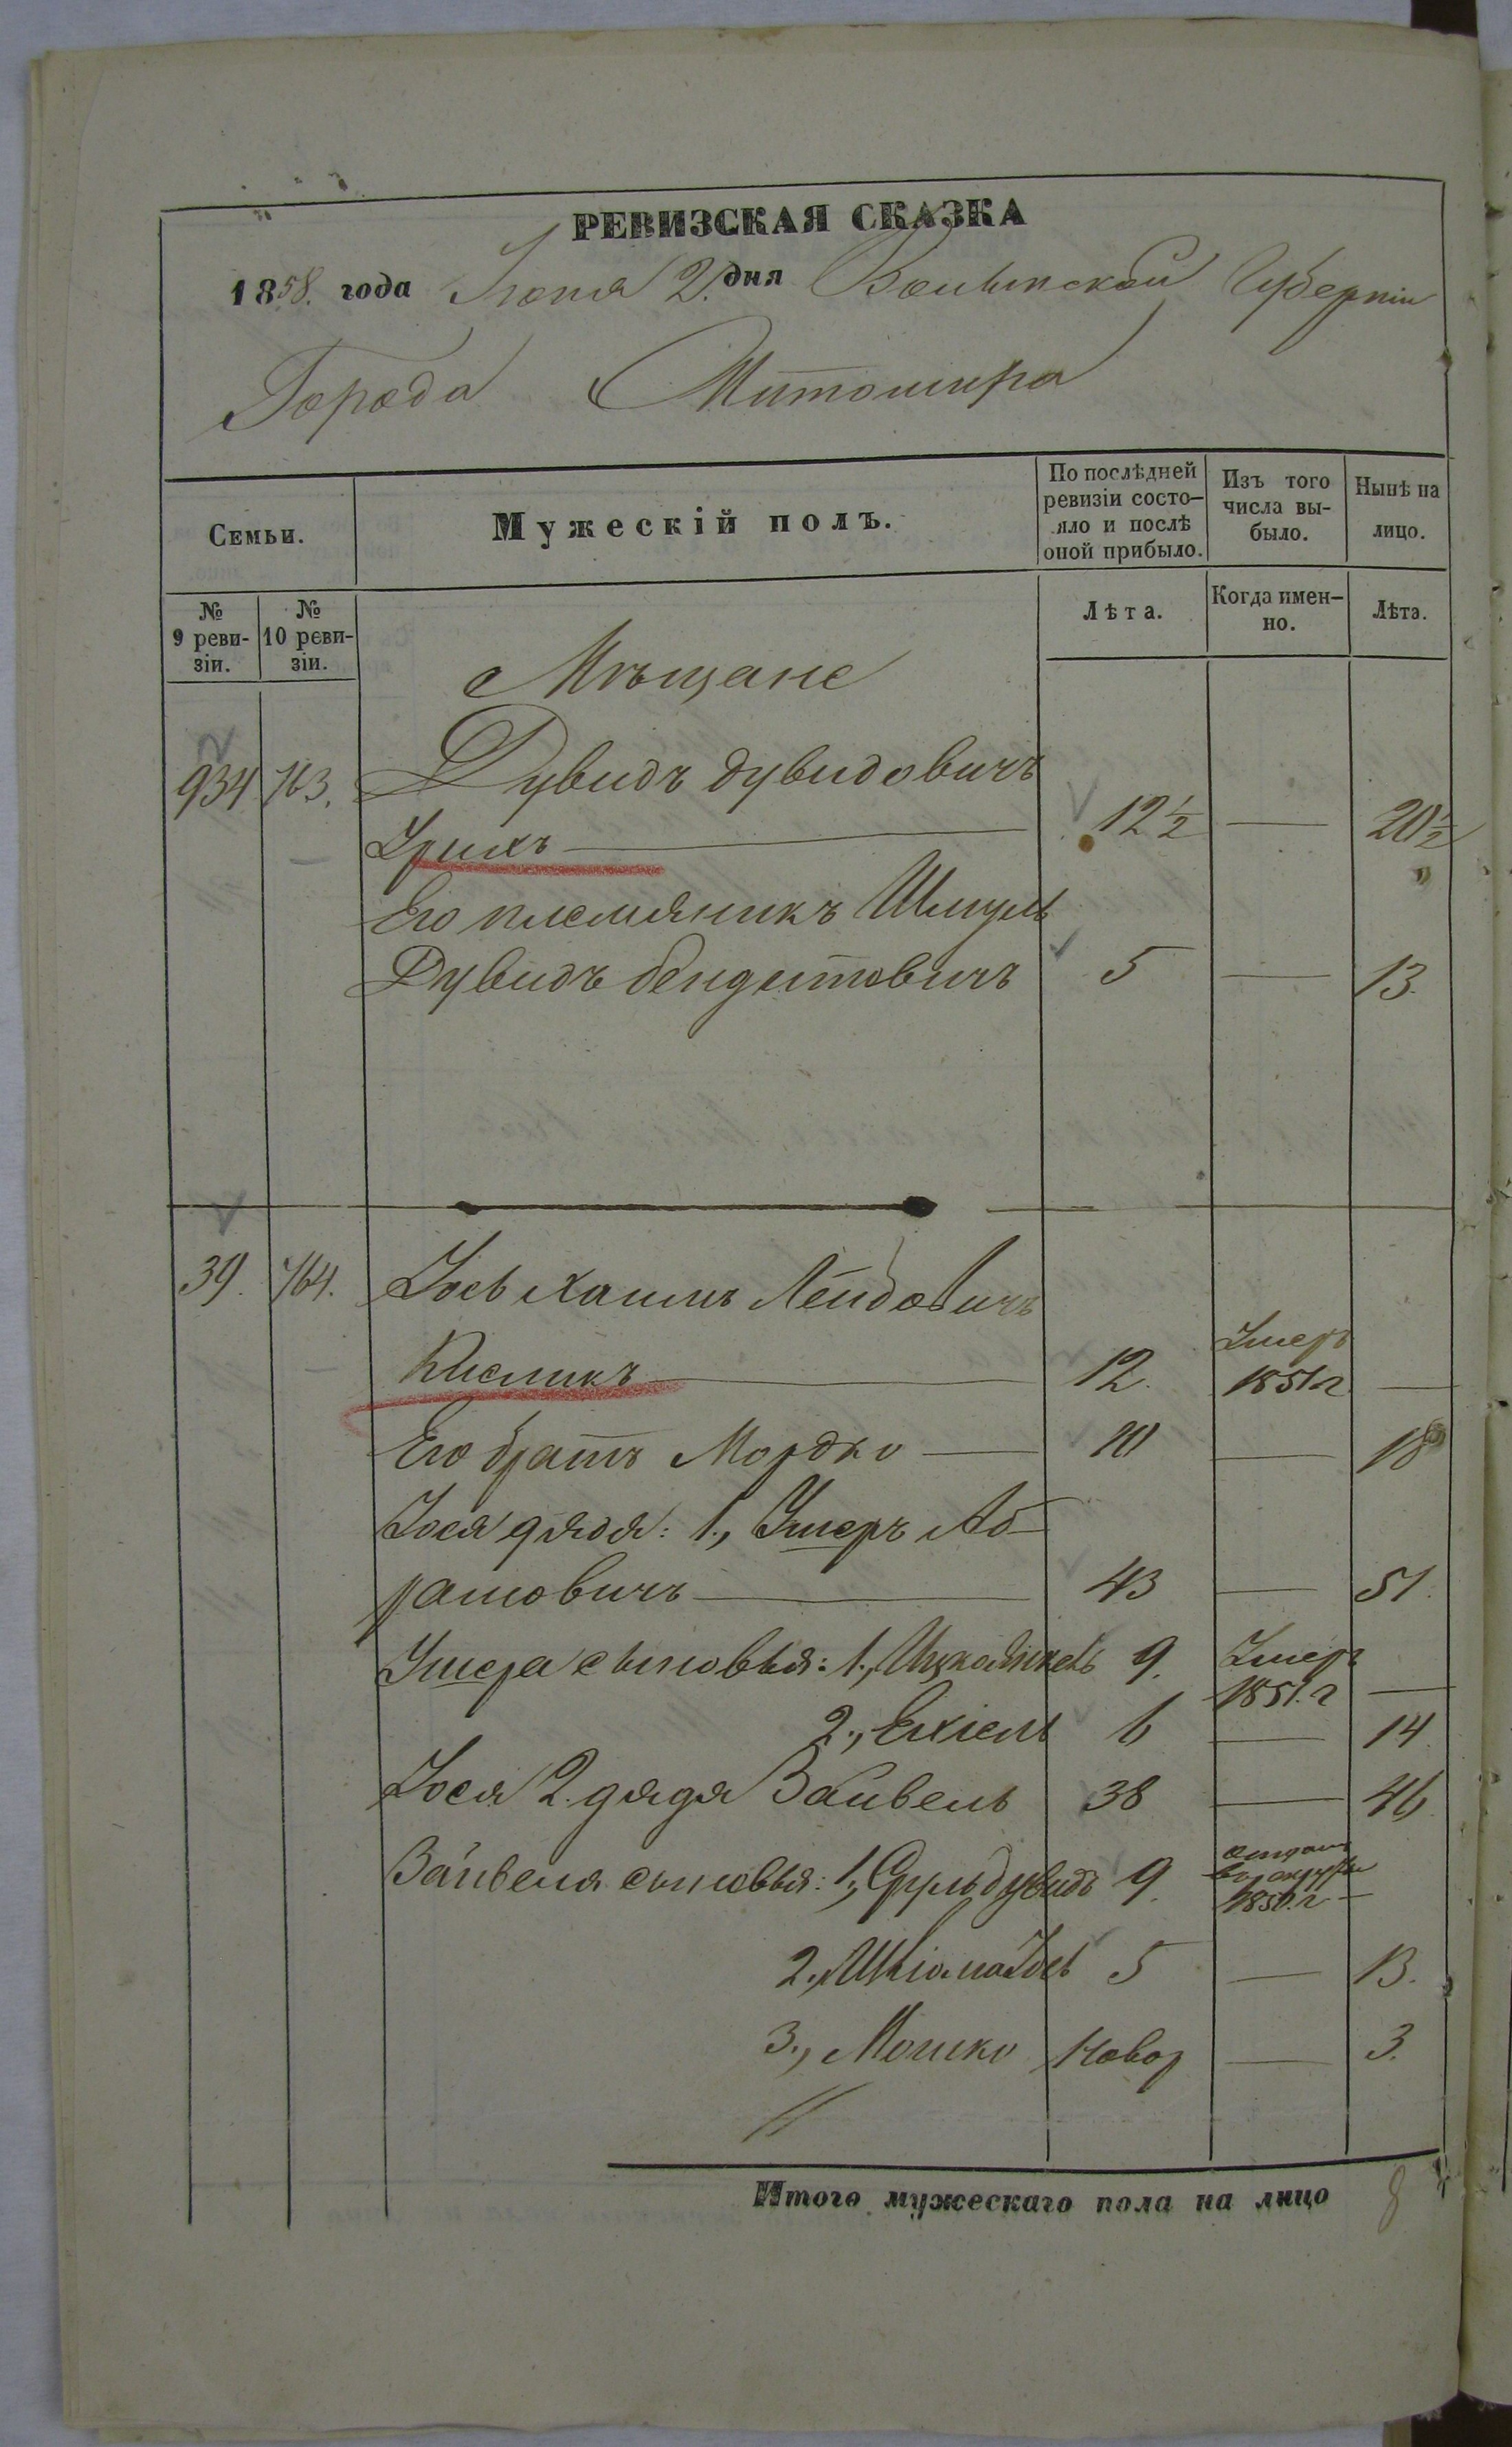 РЕВИЗСКАЯ СКАЗКА
1858. года Іюня 2. дня Волынской Губерніи
Города Житомира
Семьи.
Мужескій полъ.
По послѣдней ревизіи состо-яло и послѣ оной прибыло.
Изъ того числа вы-было.
Нынѣ на лицо.
№ 9 реви-зіи.
№ 10 реви-зіи.
Лѣта.
Когда имен-но.
Лѣта.
Мѣщане
934 763. Дувидъ Дувидовичъ
12½ — 20½
Его племяникъ Шмуль
Дувидъ бендетовичъ 5 — 13
39. 764. Іось Хаимъ Лейбовичъ
Кисликъ — 12. Умеръ 1851 г —
Его братъ Мордко — 10 — 18
Іося дядя: 1., Ушеръ Аб-
рамовичъ — 43 — 51.
Ушера сыновья: 1., 9. Умеръ 1851. г —
2., Ехіель 6 — 14
Іося 2. дядя Зайвель 38 — 46
Зайвеля сыновья: 1., Сруль дувидъ 9. отданъ въ рекруты 1850. г —
2., 5 — 13.
3., Мошко Новор — 3.
Итого мужескаго пола на лицо 8